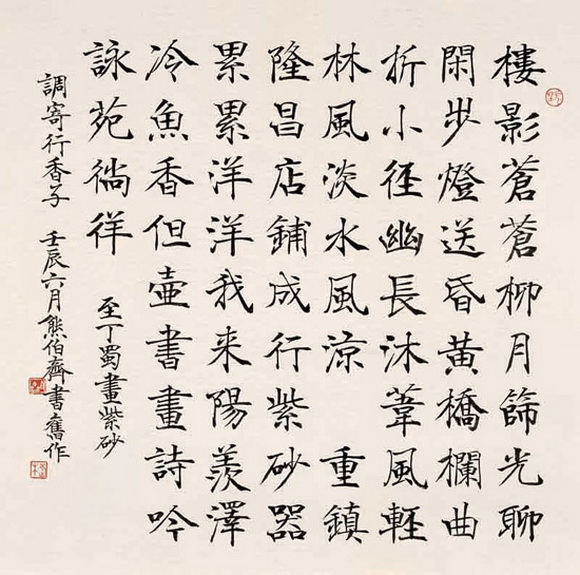 樓影蒼蒼柳月篩光聊
閑步燈送昏黃橋欄曲
折小徑幽長沐葦風輕
林風淡水風涼 重鎮
隆昌店鋪成行紫砂器
累累洋洋我来陽羨澤
冷魚香但壺書畫詩吟
詠苑徜徉 至丁蜀畫紫砂
調寄行香子 壬辰六月熊伯齊書舊作